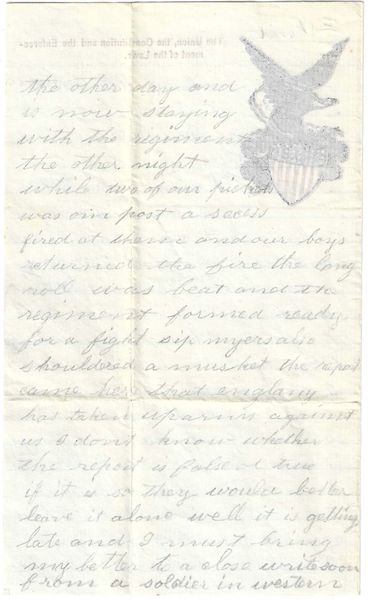 The Union, the Constitution and the Enforce-
ment of the Laws.
the other day and
is now staying
with the regiment
the other night
while two of our pickets
was oin post a secess
fired at theme and our boys
returned the fire the long
roll was beat and the
regiment formed ready
for a fight sip myers also
shouldered a musket the report
came here that englany
has taken up arms against
us I dont know whether
the report is false or true
if it is so they would better
leave it alone well it is getting
late and I must bring
my better to a close write soon
from a soldier in western